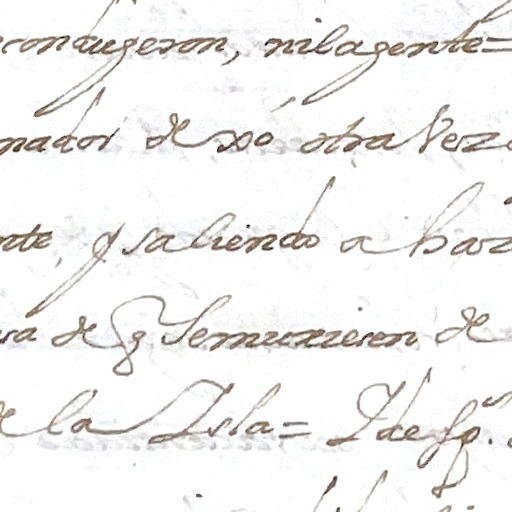 condugeron, nilagente=
nador de xó otra Vez
nte, y saliendo a haz
ra de q Semurieren de
de la Isla= Y de